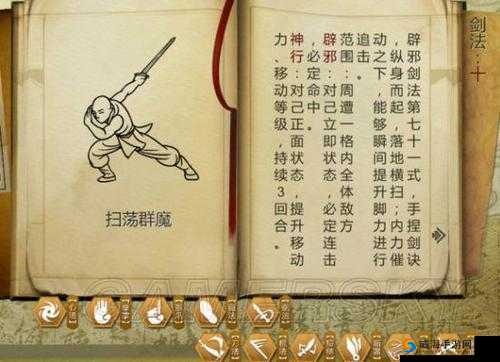 剑法：十
辟邪剑法第七十一式；手捏剑诀
纵身而起，落地横扫，内力催
动之下，能够瞬间提升脚力进行
追击。
范围：周遭一格内全体敌方
辟邪：对己立即状态，必定连击
，必定命中。
神行：对己正面状态，提升移动
力、移动等级。持续3回合。
扫荡群魔
威海手游网